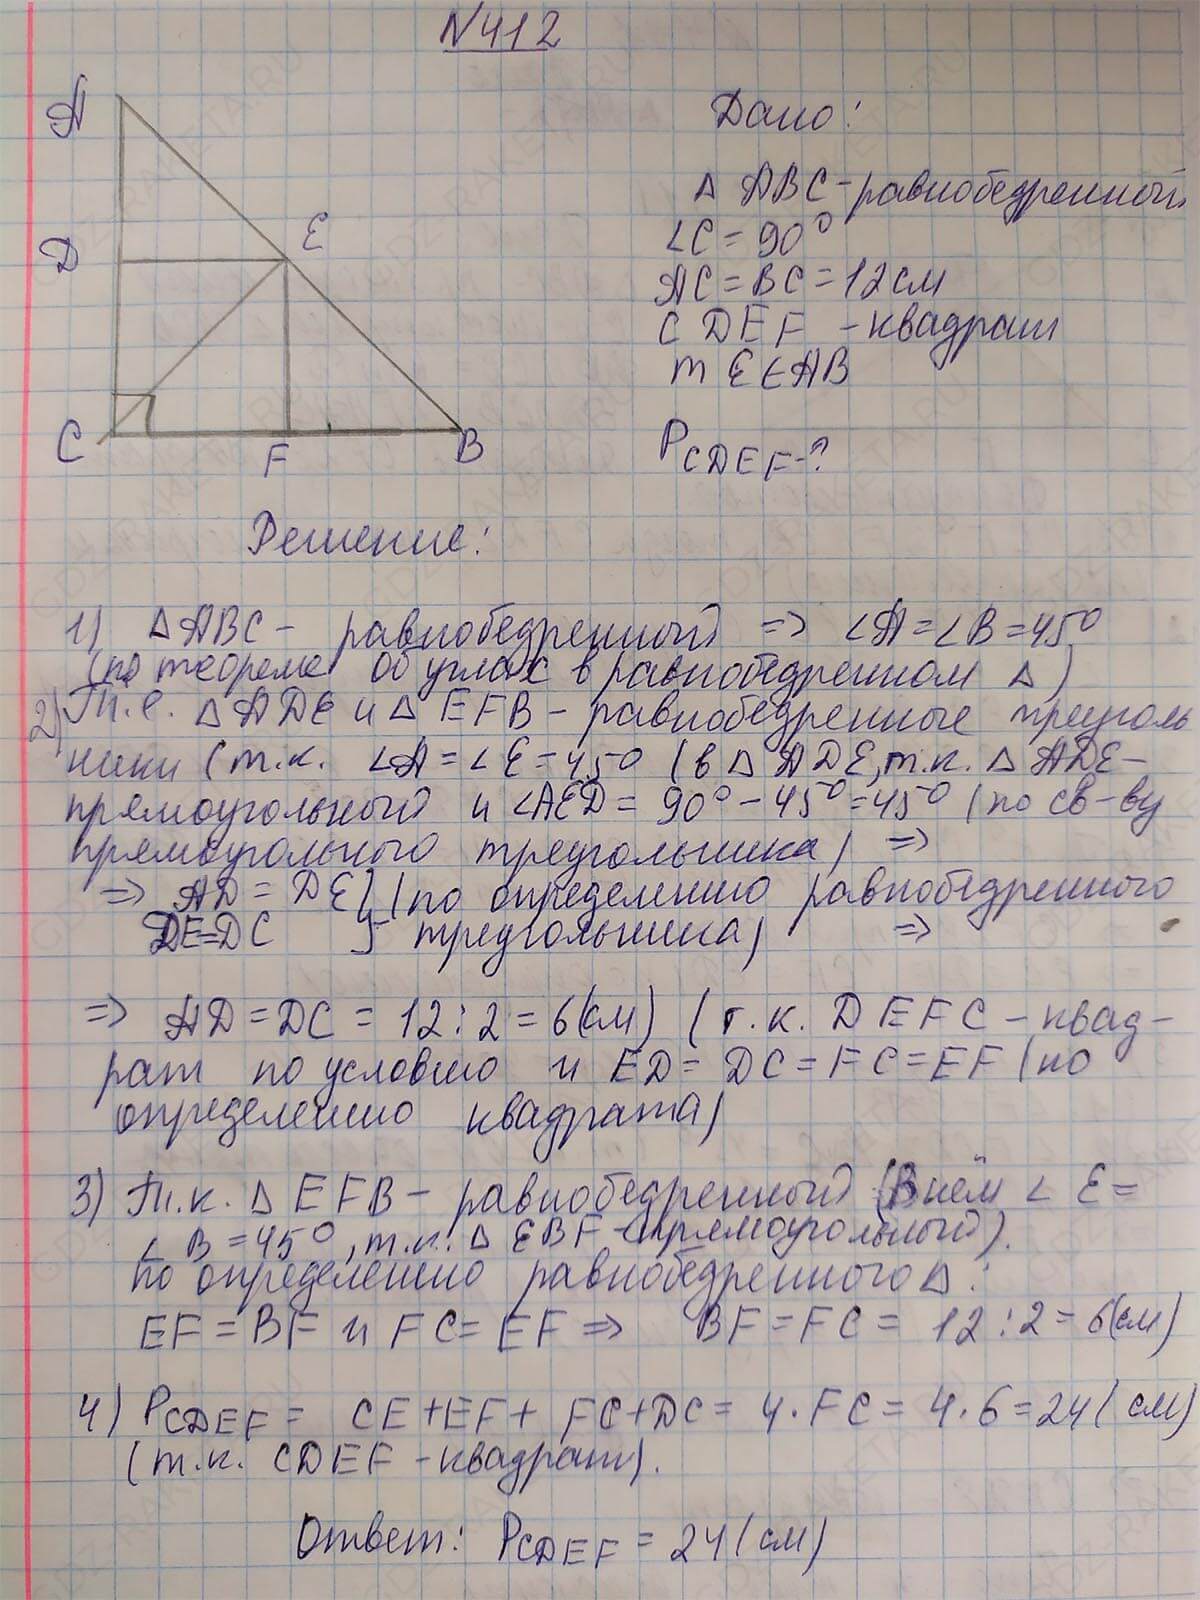 N412
A
D
E
C
F
B
Дано:
Δ ABC - равнобедренный
∠C = 90°
AC = BC = 12 см
CDEF - квадрат
т E ∈ AB
P CDEF - ?
Решение:
1) ΔABC - равнобедренный => ∠A = ∠B = 45°
(по теореме об углах в равнобедренном Δ)
2) Т.е. ΔADE и Δ EFB - равнобедренные треуголь
ники (т.к. ∠A = ∠E = 45° (в Δ ADE, т.к. Δ ADE -
прямоугольный и ∠AED = 90° - 45° = 45° (по св-ву
прямоугольного треугольника) =>
=> AD = DE } (по определению равнобедренного
DE = DC } треугольника) =>
=> AD = DC = 12 : 2 = 6 (см) (т.к. DEFC - квад-
рат по условию и ED = DC = FC = EF (по
определению квадрата)
3) Т.к. Δ EFB - равнобедренный (В нём ∠ E =
∠ B = 45°, т.к. Δ EBF - прямоугольный).
по определению равнобедренного Δ:
EF = BF и FC = EF => BF = FC = 12 : 2 = 6 (см)
4) P CDEF = CE + EF + FC + DC = 4 · FC = 4 · 6 = 24 (см)
(т.к. CDEF - квадрат).
Ответ: P CDEF = 24 (см)